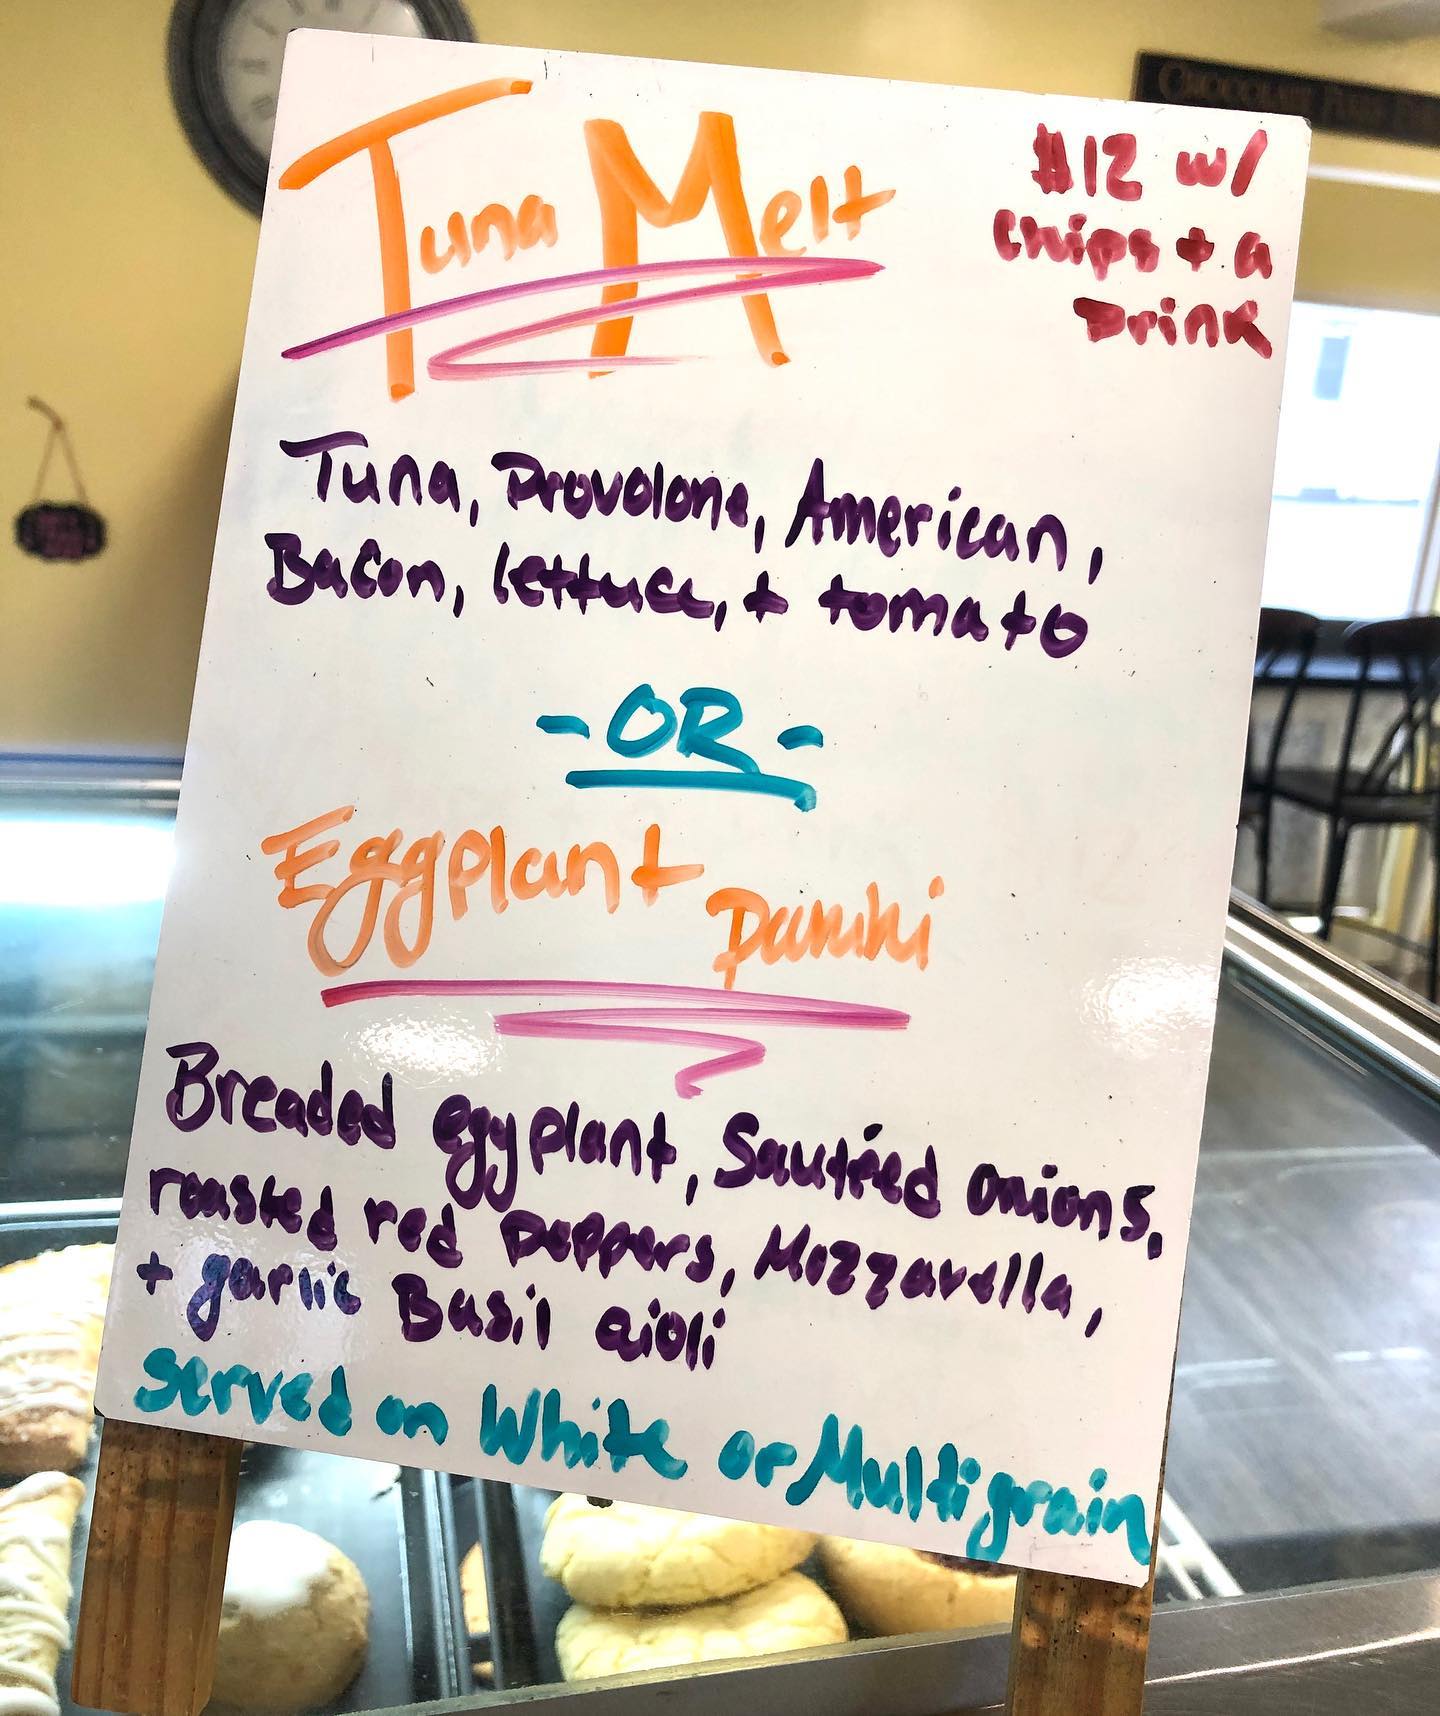 Tuna Melt
$12 w/
chips + a
Drink
Tuna, Provolone, American,
Bacon, lettuce, + tomato
- OR -
Eggplant panini
Breaded eggplant, Sautéed onions,
roasted red peppers, Mozzarella,
+ garlic Basil aioli
served on White or Multigrain
CHOCOLATE